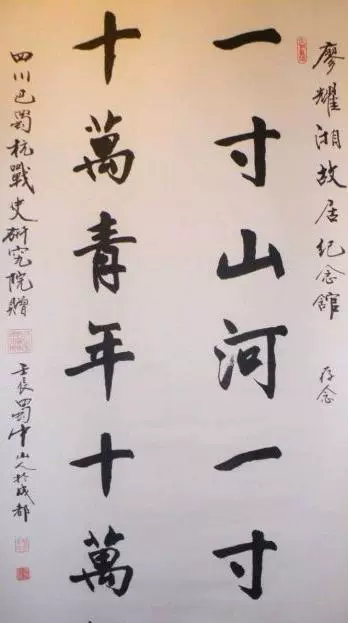 廖耀湘故居纪念館 存念
一寸山河一寸
十萬青年十萬
四川巴蜀抗戰史研究院贈
壬辰蜀中山人於成都